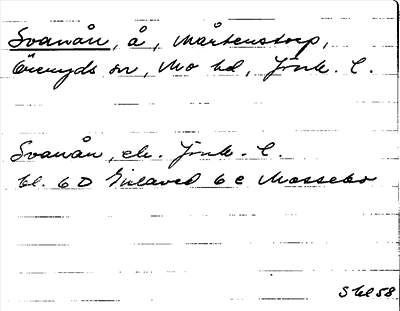 Svanån, å, Mårtenstorp,
Öreryds sn, Mo hd, Jönk. l.
Svanån, ek. Jönk. l.
bl. 6 D Gislaved 6 e Mossebo
S bl 58